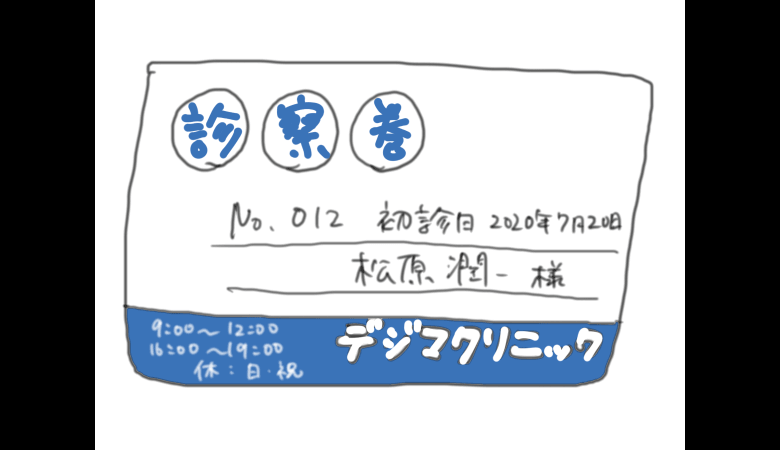 診察巻
No. 012 初診日 2020年7月20日
松原 潤一 様
9:00〜12:00
16:00〜19:00
休：日・祝
デジマクリニック